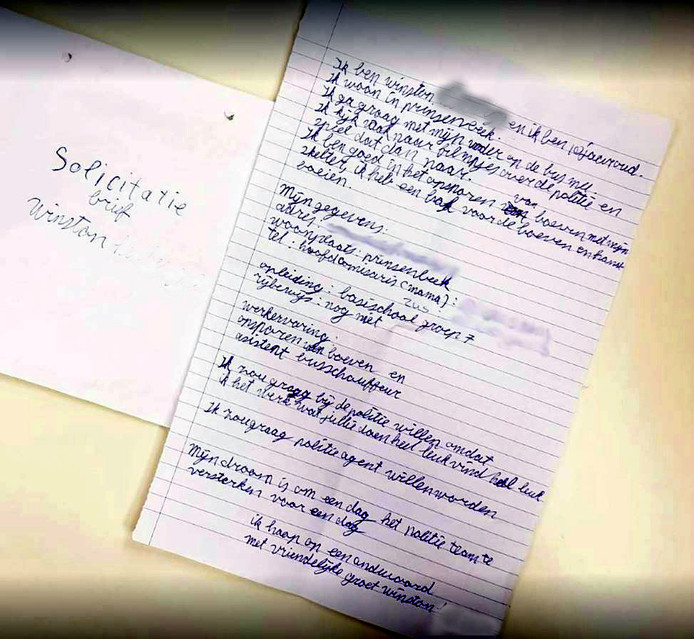 Solicitatie
brief
Winston
Ik ben winston en ik ben 10 jaar oud.
ik woon in prinsenbeek.
Ik ga graag met mijn vader op de bus mee
Ik kijk vaak naar filmpjes over de politie en
speel dat dan naar.
Ik ben goed in het opsporen van boeven met mijn
skelter, ik heb een bak voor de boeven en kan
boeien.
Mijn gegevens:
adres:
woonplaats: prinsenbeek
tel: hoofdcomisaris (mama):
zus
opleiding: basisschool groep 7
rijbewijs: nog niet
werkervaring:
opsporen van boeven en
asistent buschauffeur
Ik zou graag bij de politie willen omdat
ik het werk wat jullie doen heel leuk vind
Ik zou graag politie agent willen worden
Mijn droom is om een dag het politie team te
versterken voor een dag
ik hoop op een andwoord
met vriendelijke groet winston!